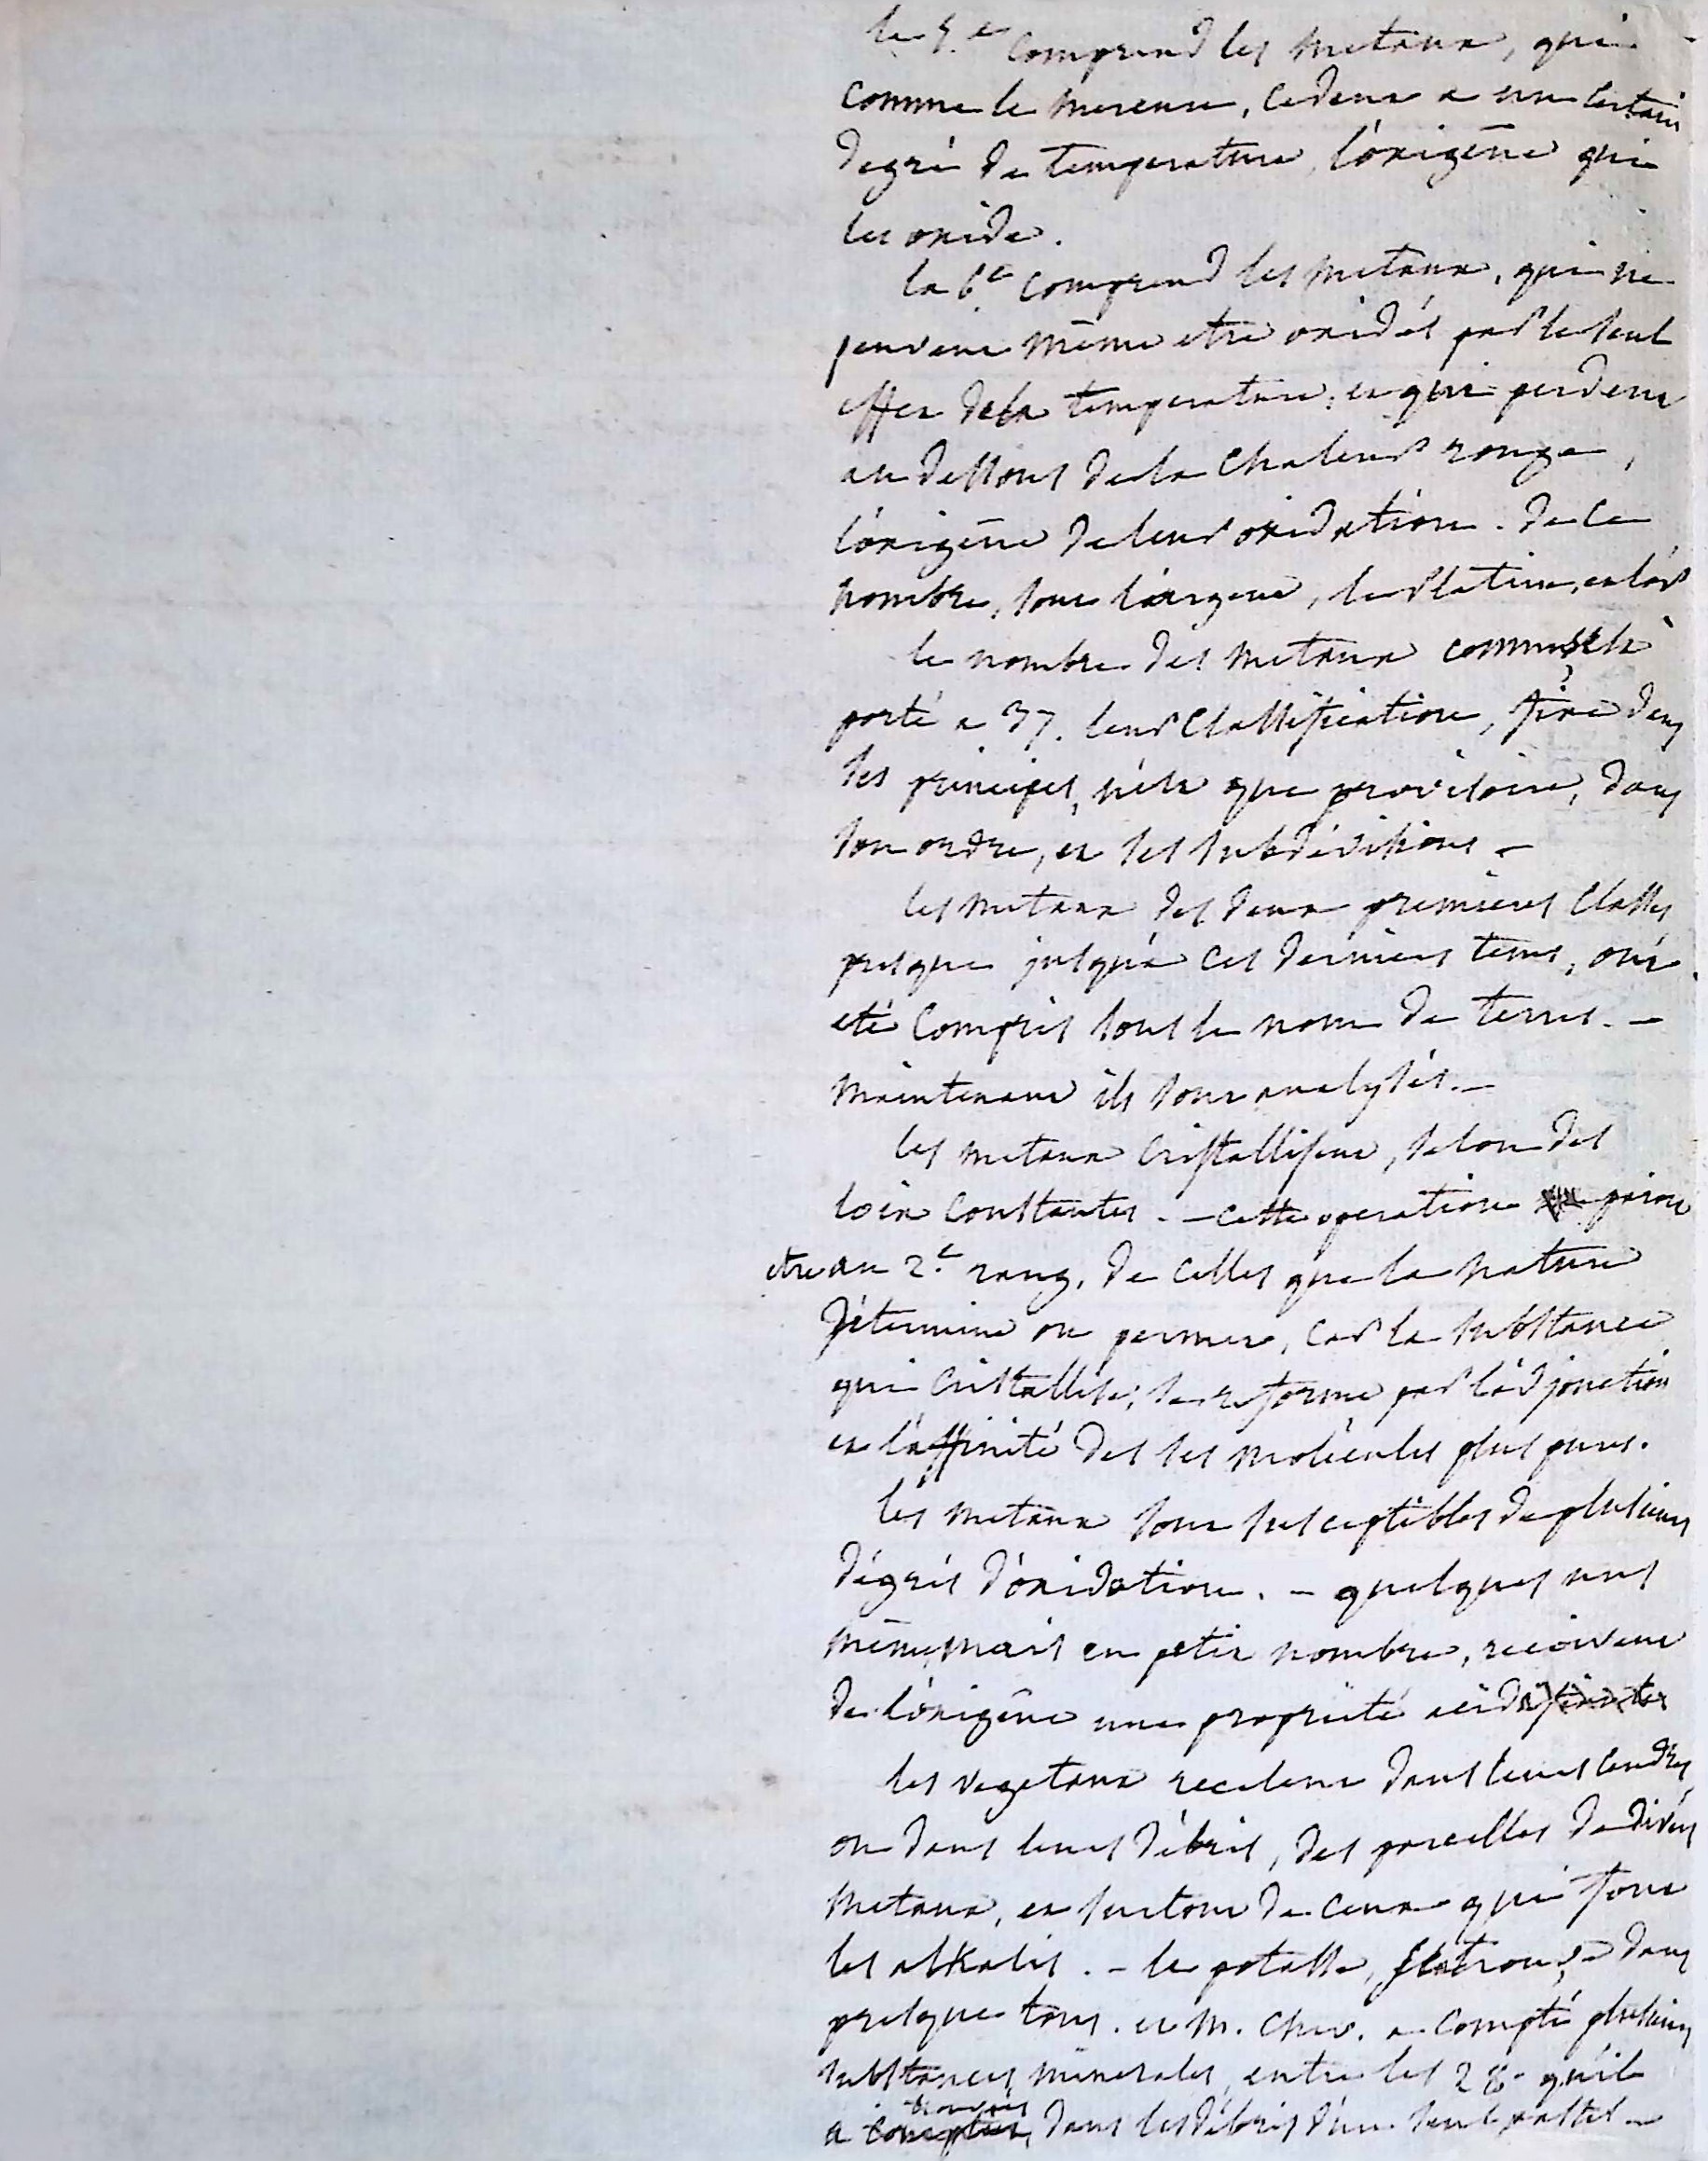 la 5.e comprend les metaux, qui
comme le mercure, cedent a un certain
degré de temperature, l'oxigène qui
les oxide.
la 6e comprend les metaux, qui ne
peuvent même etre oxidés par le seul
effet de la temperature; et qui perdent
au dessous de la chaleur rouge,
l'oxigène de leur oxidation. de ce
nombre, sont l'argent, le platine, et l'or
le nombre des metaux connus, est
porté a 37. leur classification, fixe dans
ses principes, n'est que provisoire, dans
son ordre, et ses subdivisions –
les metaux des deux premieres classes,
presque jusqu'à ces derniers tems, ont
eté compris sous le nom de terres. –
maintenant ils sont analysés. –
les metaux cristallisent, selon des
loix constantes. – cette operation parait
etre au 2.e rang, de celles que la nature
détermine ou permet, car la substance
qui cristallise; se reforme par l'adjonction
et l'affinité des ses molécules plus pures.
les metaux sont susceptibles de plusieurs
dégrés d'oxidation. – quelques uns
même, mais en petit nombre, recoivent
de l'oxigène une proprieté
les vegetaux recelent dans leurs cendres,
ou dans leurs débris, des parcelles de divers
metaux, et surtout de ceux qui font
les alkalis. – la potasse, se trouve dans
presque tous. et M. Chev. a compté plusieurs
substances minerales, entre les 28. qu'il
a trouvées dans les débris d'un seul pastel –